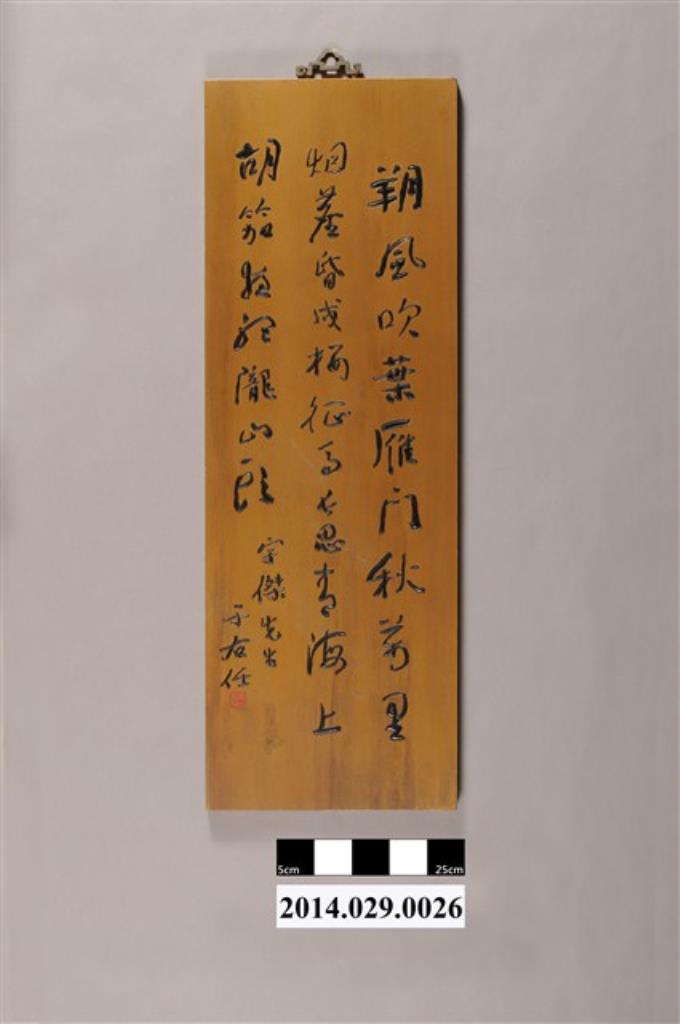 朔風吹葉雁門秋萬里
烟塵昏戍樓征馬長思青海上
胡笳夜聽隴山頭
宗傑先生
于右任
5cm 25cm
2014.029.0026